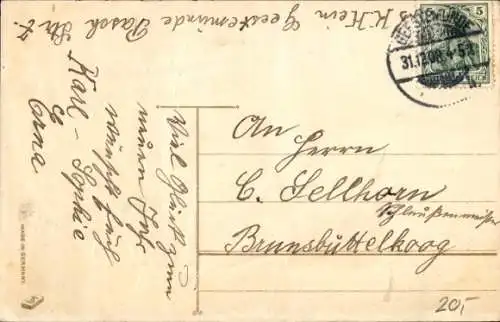 K. Hein Geestemünde Dasch Str. 7.
GEESTEMÜNDE
31.12.08. 4-5
5
Viel Glück zum
neuen Jahr
wünscht Euch
Karl - Sophie
&
Erna
An
Herrn
C. Sellhorn
Schleußenmeister
Brunsbüttelkoog
MADE IN GERMANY.
20,-